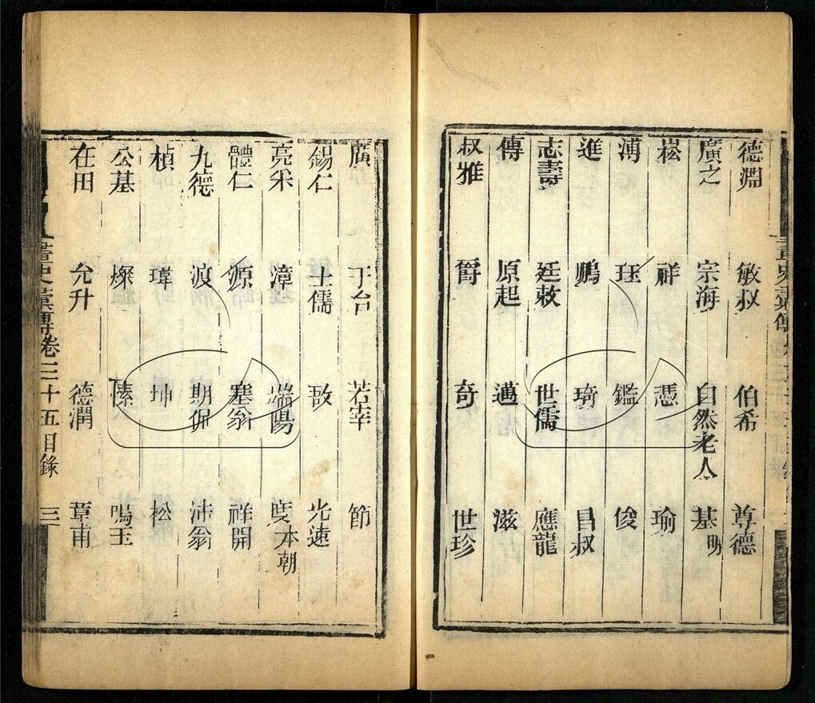 德淵 敏叔 伯希 尊德
廣之 宗海 自然老人 基明
崧 祥 憑 瑜
溥 珏 鑑 俊
進 鵬 琦 昌叔
志壽 廷敕 世儒 應龍
傳 原起 邁 滋
叔雅 爵 奇 世珍
廣 于台 若宰 節
錫仁 士儒 敔 光遠
亮采 漳 端陽 度本朝
體仁 源 塞翁 祥開
九德 浪 期保 沛翁
楨 瑋 坤 松
公基 燦 愫 鳴玉
在田 允升 德潤 章甫
畫史彙傳卷三十五目錄 三